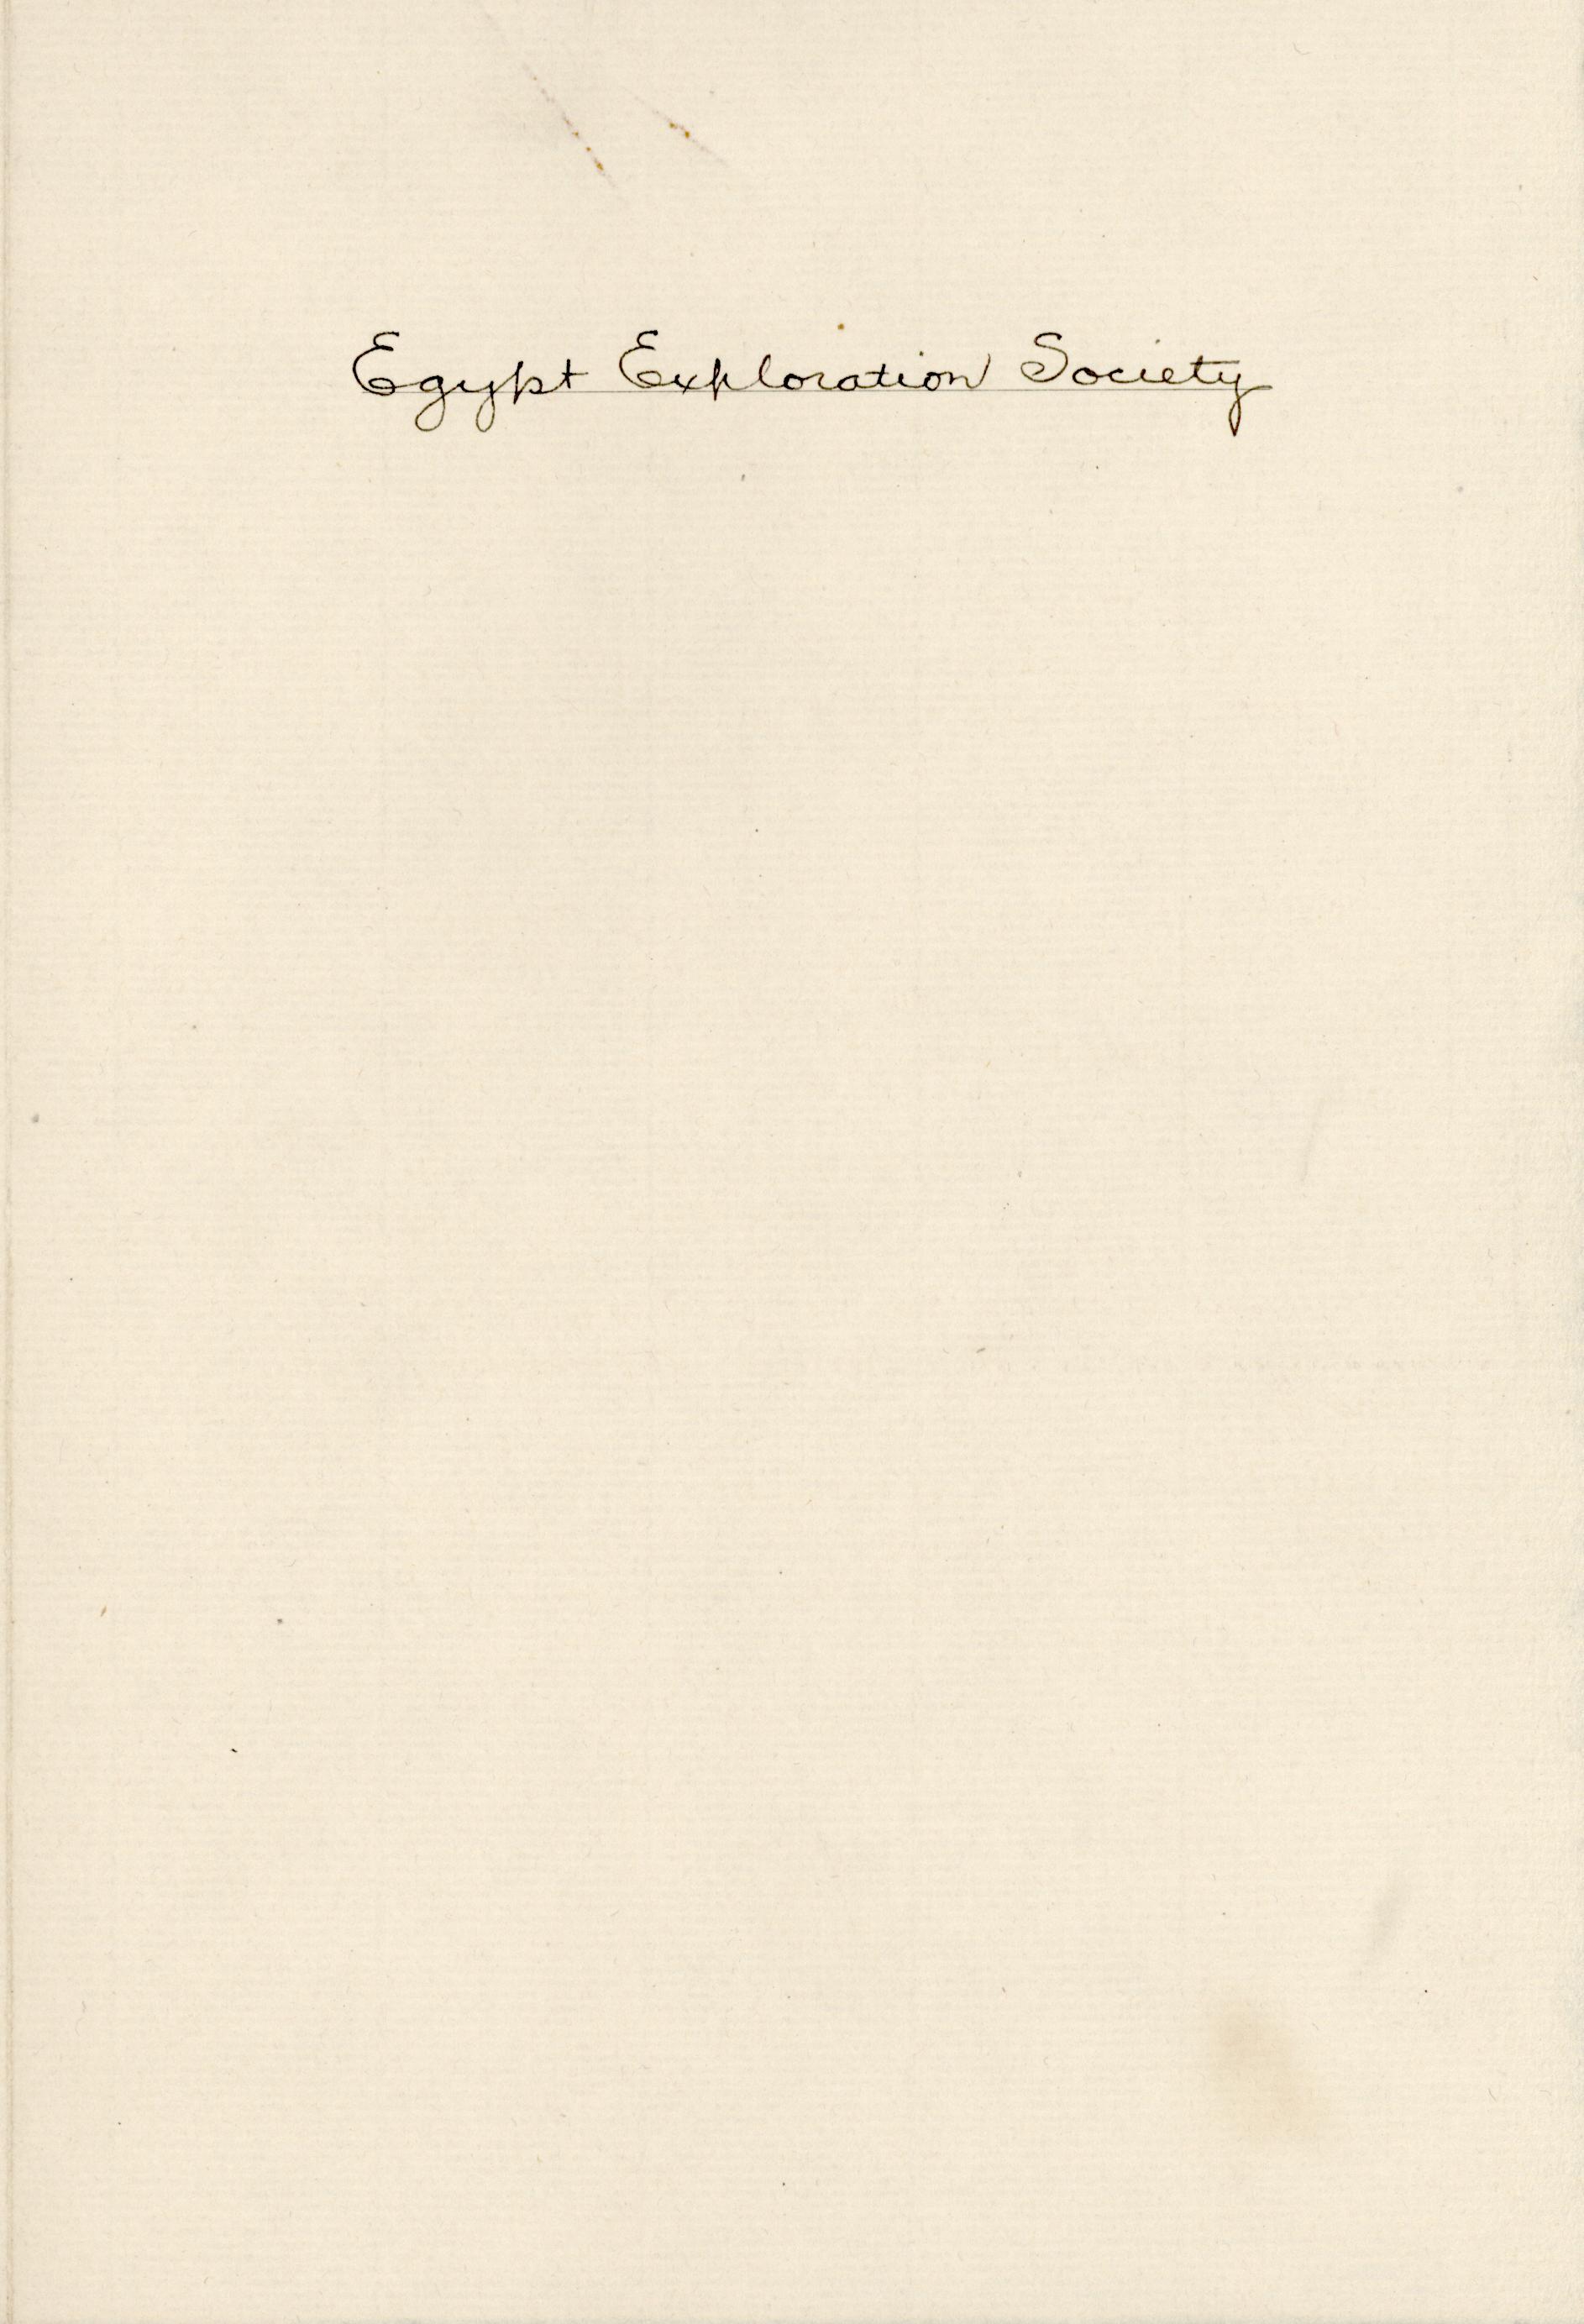 Egypt Exploration Society